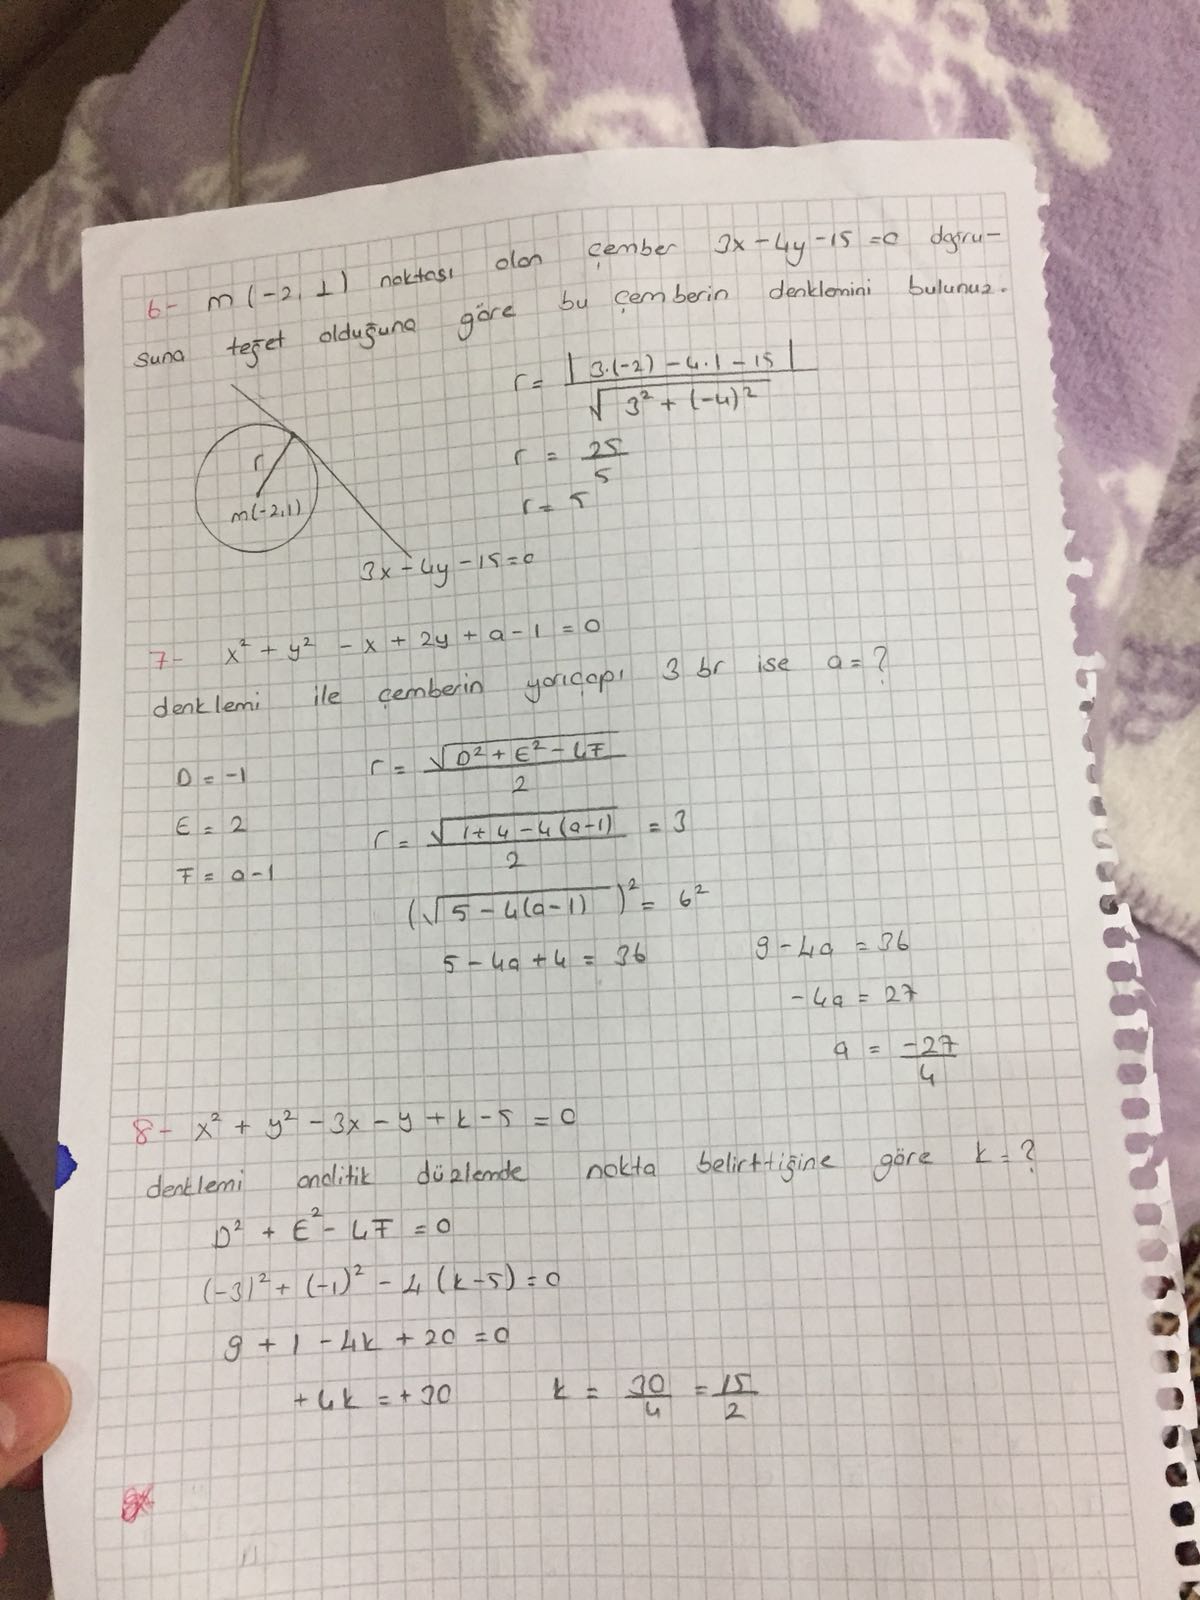 6- m(-2,1) noktası olan çember 3x-4y-15=0 dğoru-
suna teğet olduğuna göre bu çemberin denklemini bulunuz.
r = |3.(-2) - 4.1 - 15| / √3² + (-4)²
r = 25/5
r = 5
r
m(-2,1)
3x-4y-15=0
7- x² + y² - x + 2y + a - 1 = 0
denklemi ile çemberin yarıçapı 3 br ise a = ?
D = -1
E = 2
F = a-1
r = √D² + E² - 4F / 2
r = √1+4-4(a-1) / 2 = 3
(√5-4(a-1))² = 6²
5 - 4a + 4 = 36
9 - 4a = 36
-4a = 27
a = -27/4
8- x² + y² - 3x - y + k - 5 = 0
denklemi analitik düzlemde nokta belirttiğine göre k = ?
D² + E² - 4F = 0
(-3)² + (-1)² - 4(k-5) = 0
9 + 1 - 4k + 20 = 0
+4k = +30
k = 30/4 = 15/2